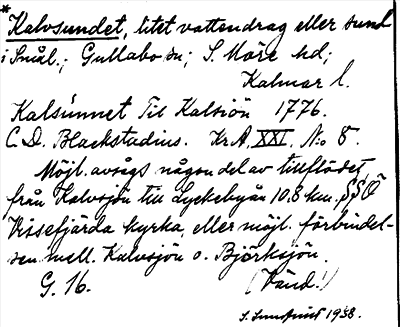 * Kalvsundet, litet vattendrag eller sund
i Smål.; Gullabo sn; S. Möre hd;
Kalmar l.
Kalsúnnet Til Kalsiön 1776.
C. D. Blackstadius. Kr. A. XXI. N:o 8.
Möjl. avsågs någon del av tillflödet
från Kalvsjön till Lyckebyån 10.8 km. SSÖ
Vissefjärda kyrka, eller möjl. förbindel-
sen mell. Kalvsjön o. Björksjön.
G. 16. (Vänd!)
S. Sundquist 1938.